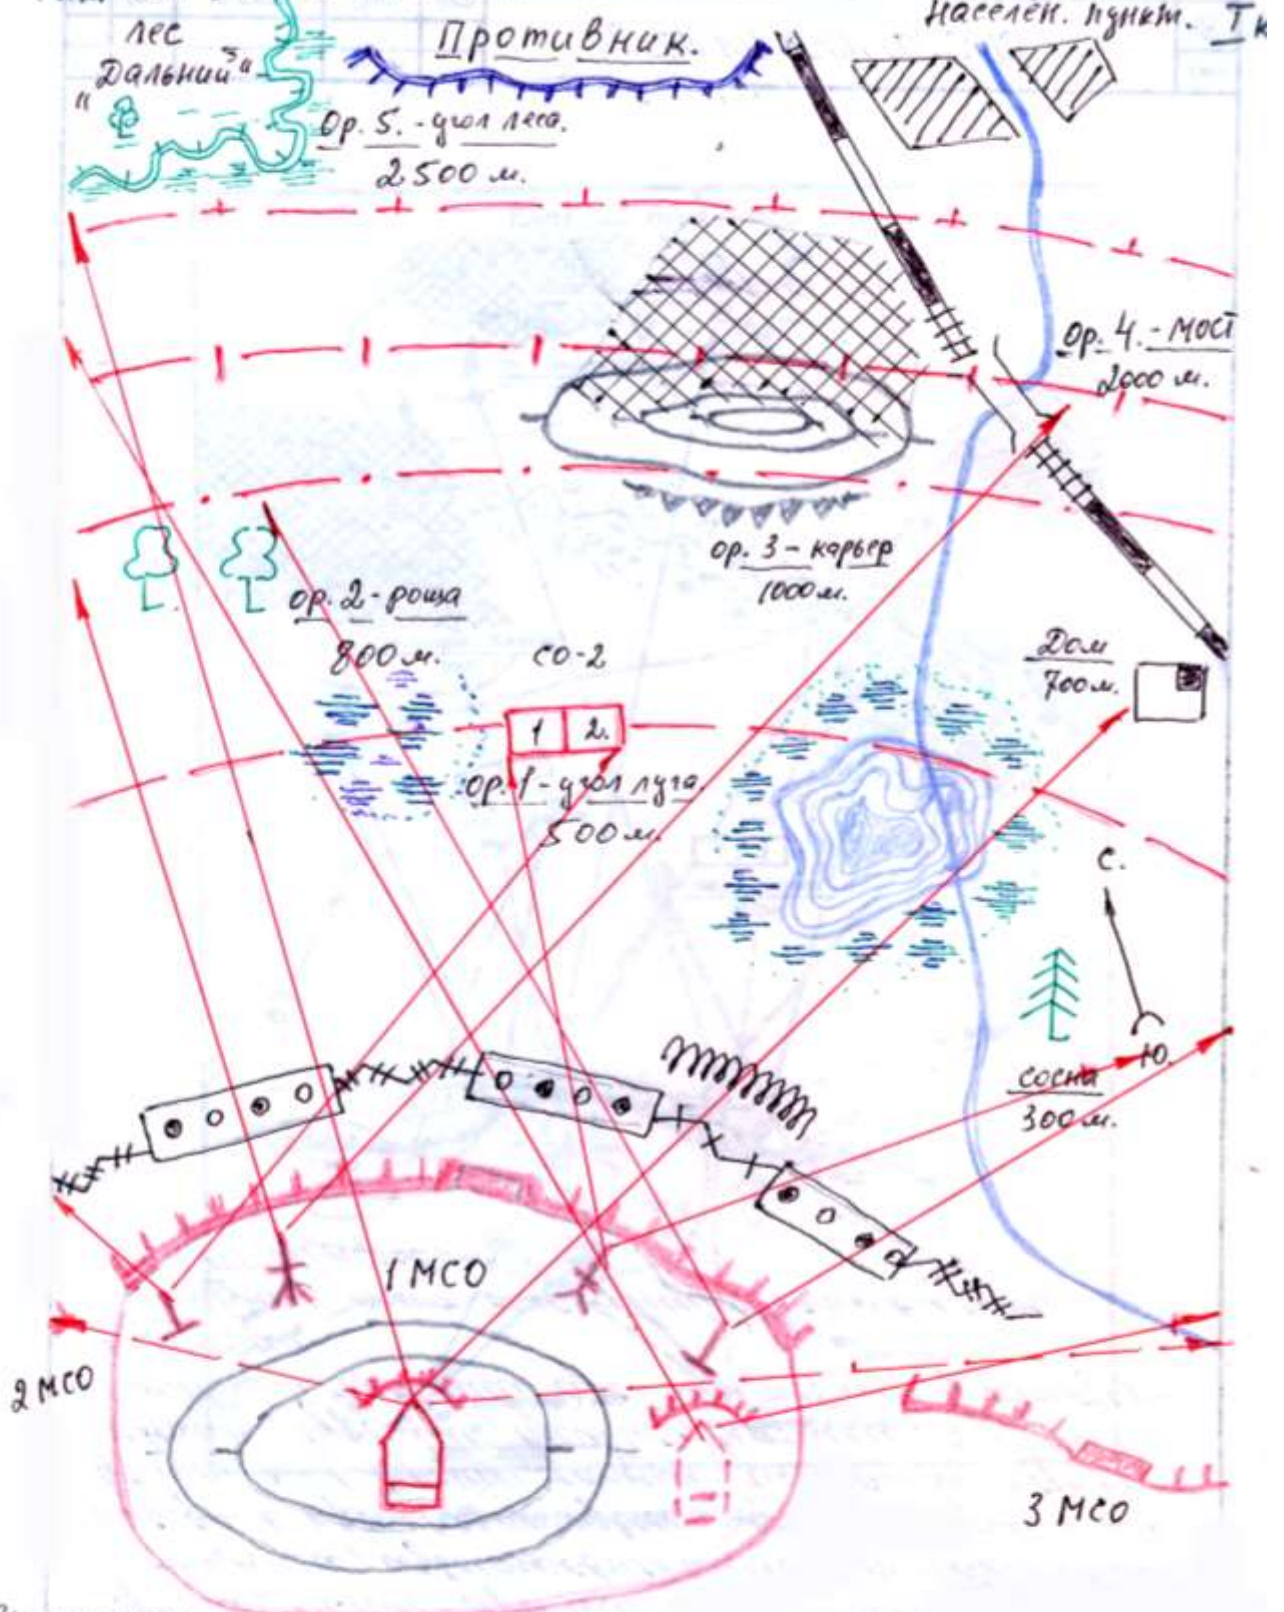 лес
"Дальний"
Противник.
Населен. пункт.
Ор. 5. - угол леса.
2500 м.
Ор. 4. - мост
2000 м.
ор. 3 - карьер
1000 м.
ор. 2 - роща
800 м.
СО-2
Дом
700 м.
1 2.
ор. 1 - угол луга.
500 м.
С.
Ю.
сосна
300 м.
1 МСО
2 МСО
3 МСО